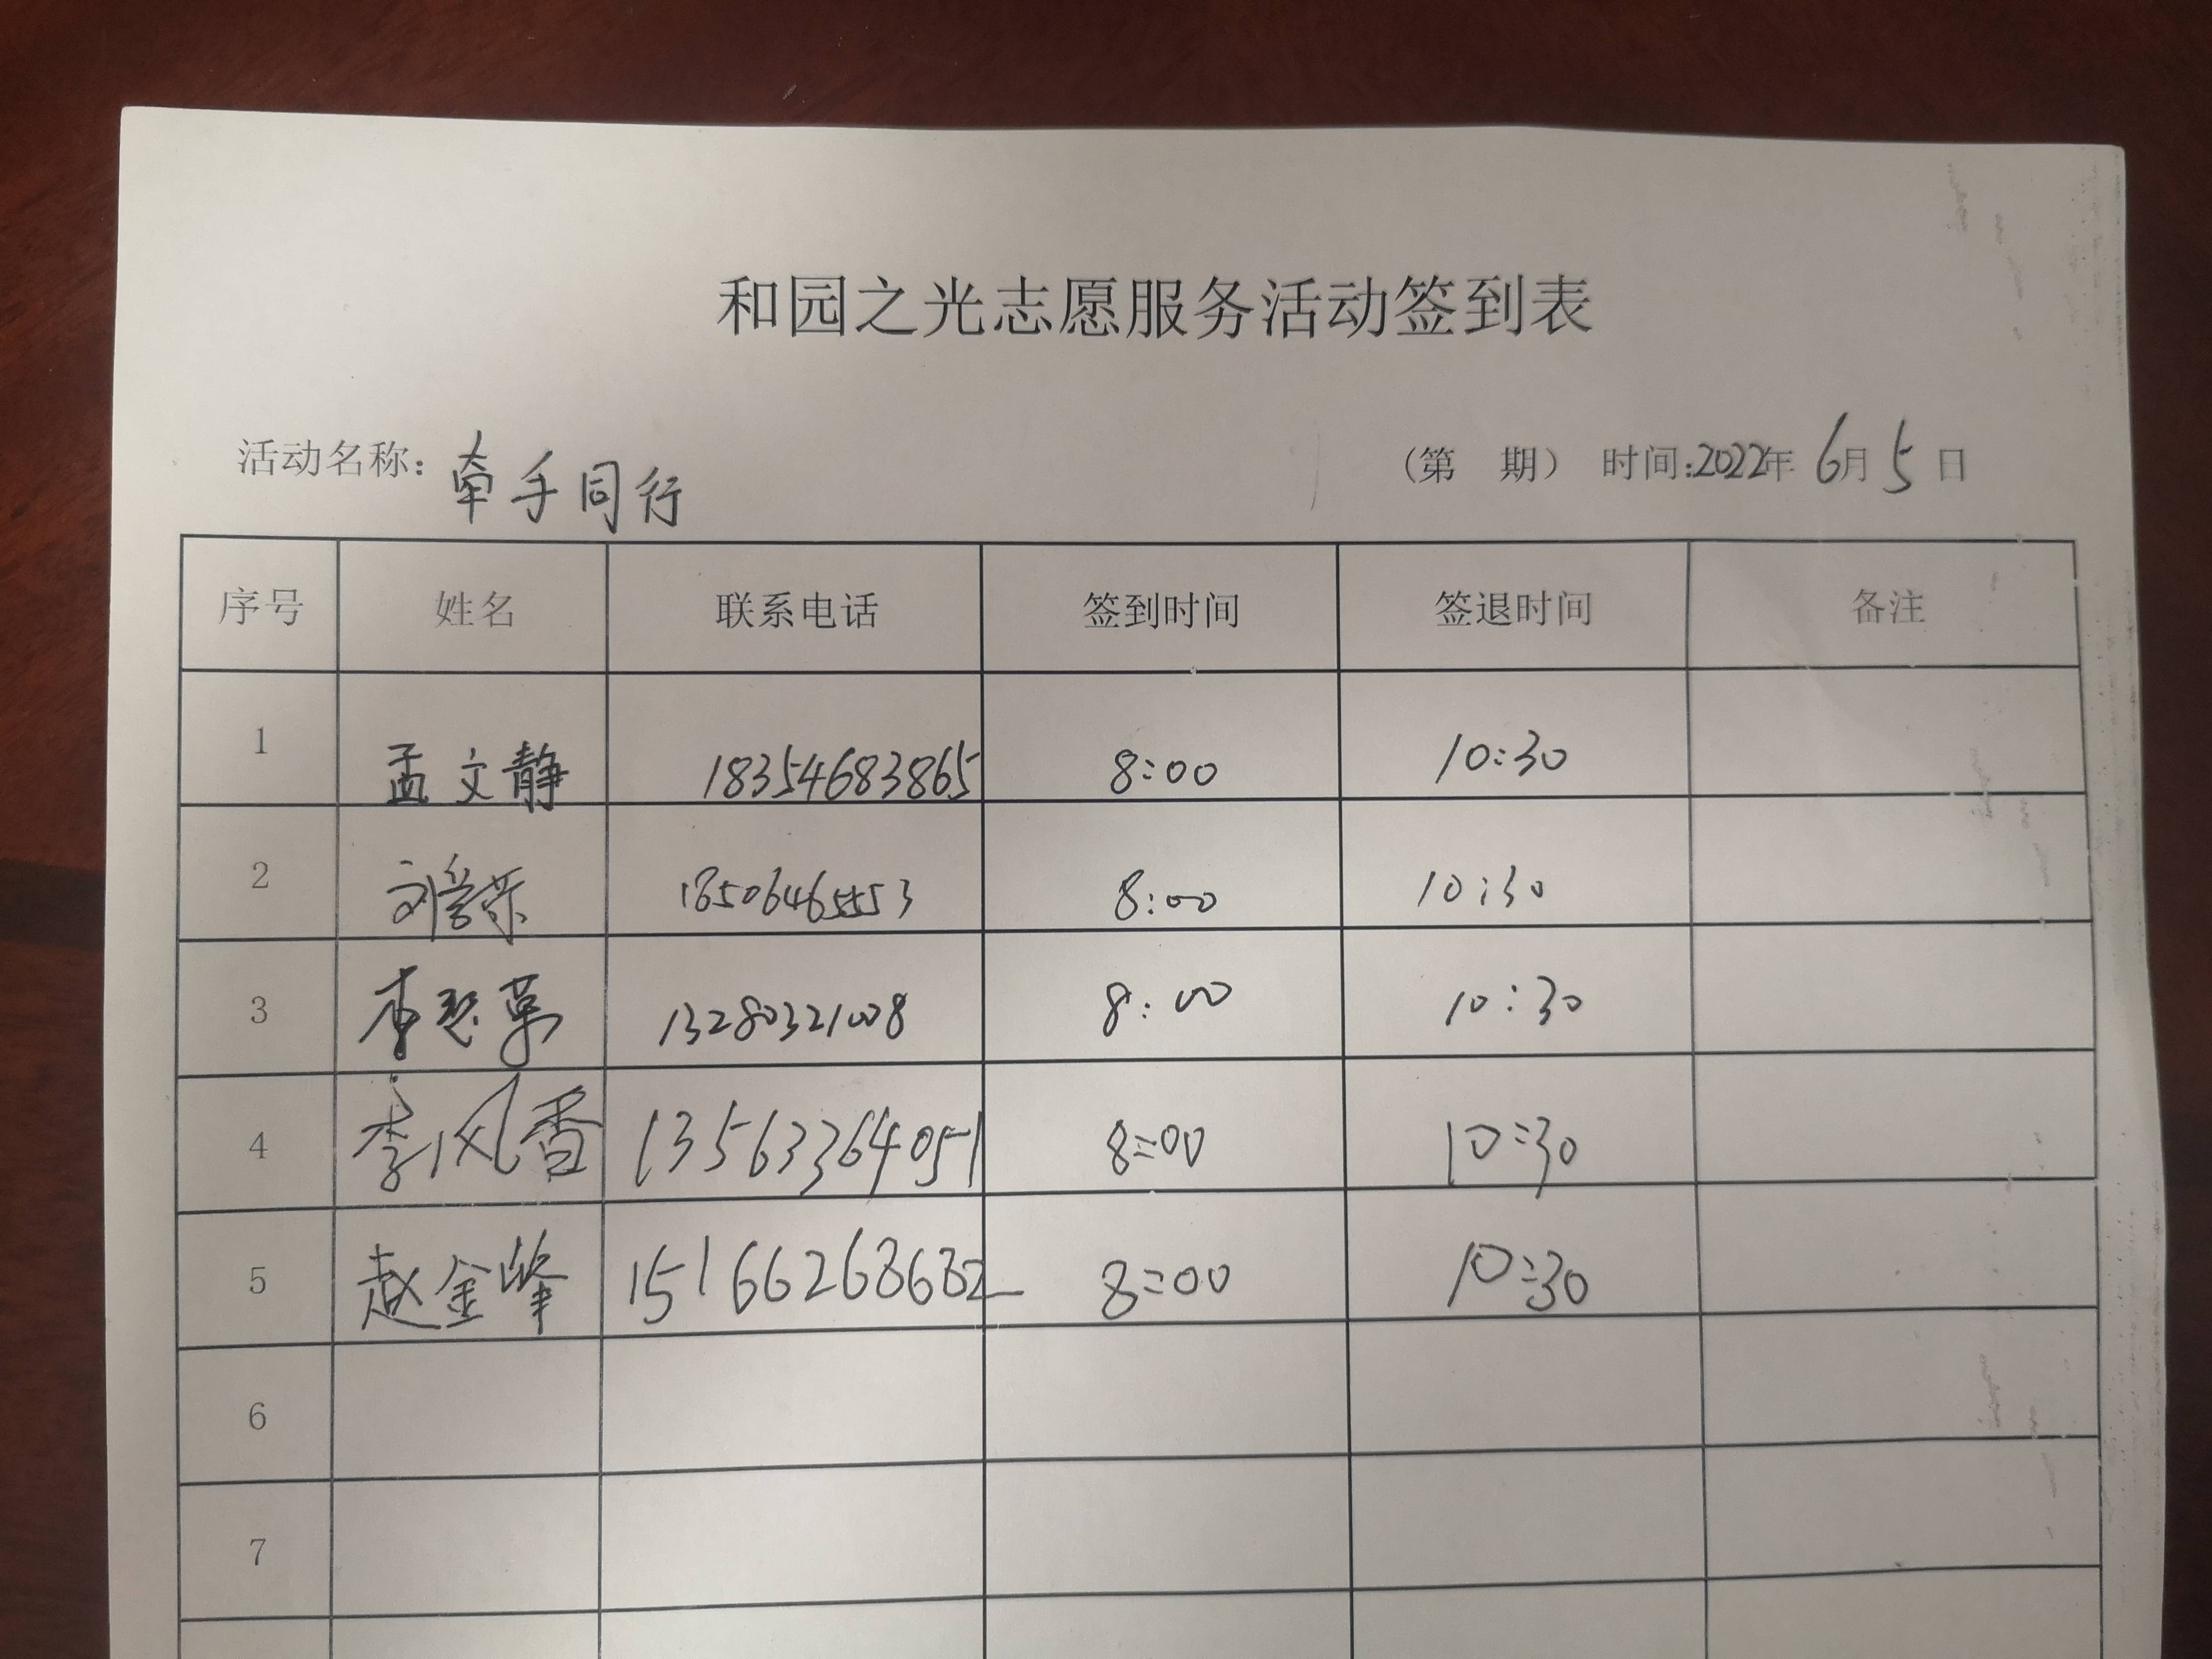 和园之光志愿服务活动签到表
活动名称：牵手同行 （第 期） 时间：2022年 6月 5日
序号 姓名 联系电话 签到时间 签退时间 备注
1 孟文静 18354683865 8:00 10:30
2 8:00 10:30
3 13280321008 8:00 10:30
4 李风香 13563364051 8:00 10:30
5 赵金峰 15166268682 8:00 10:30
6
7